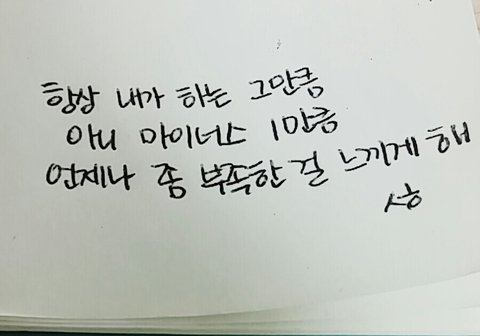 항상 내가 하는 그만큼
아니 마이너스 1만큼
언제나 좀 부족한 걸 느끼게 해